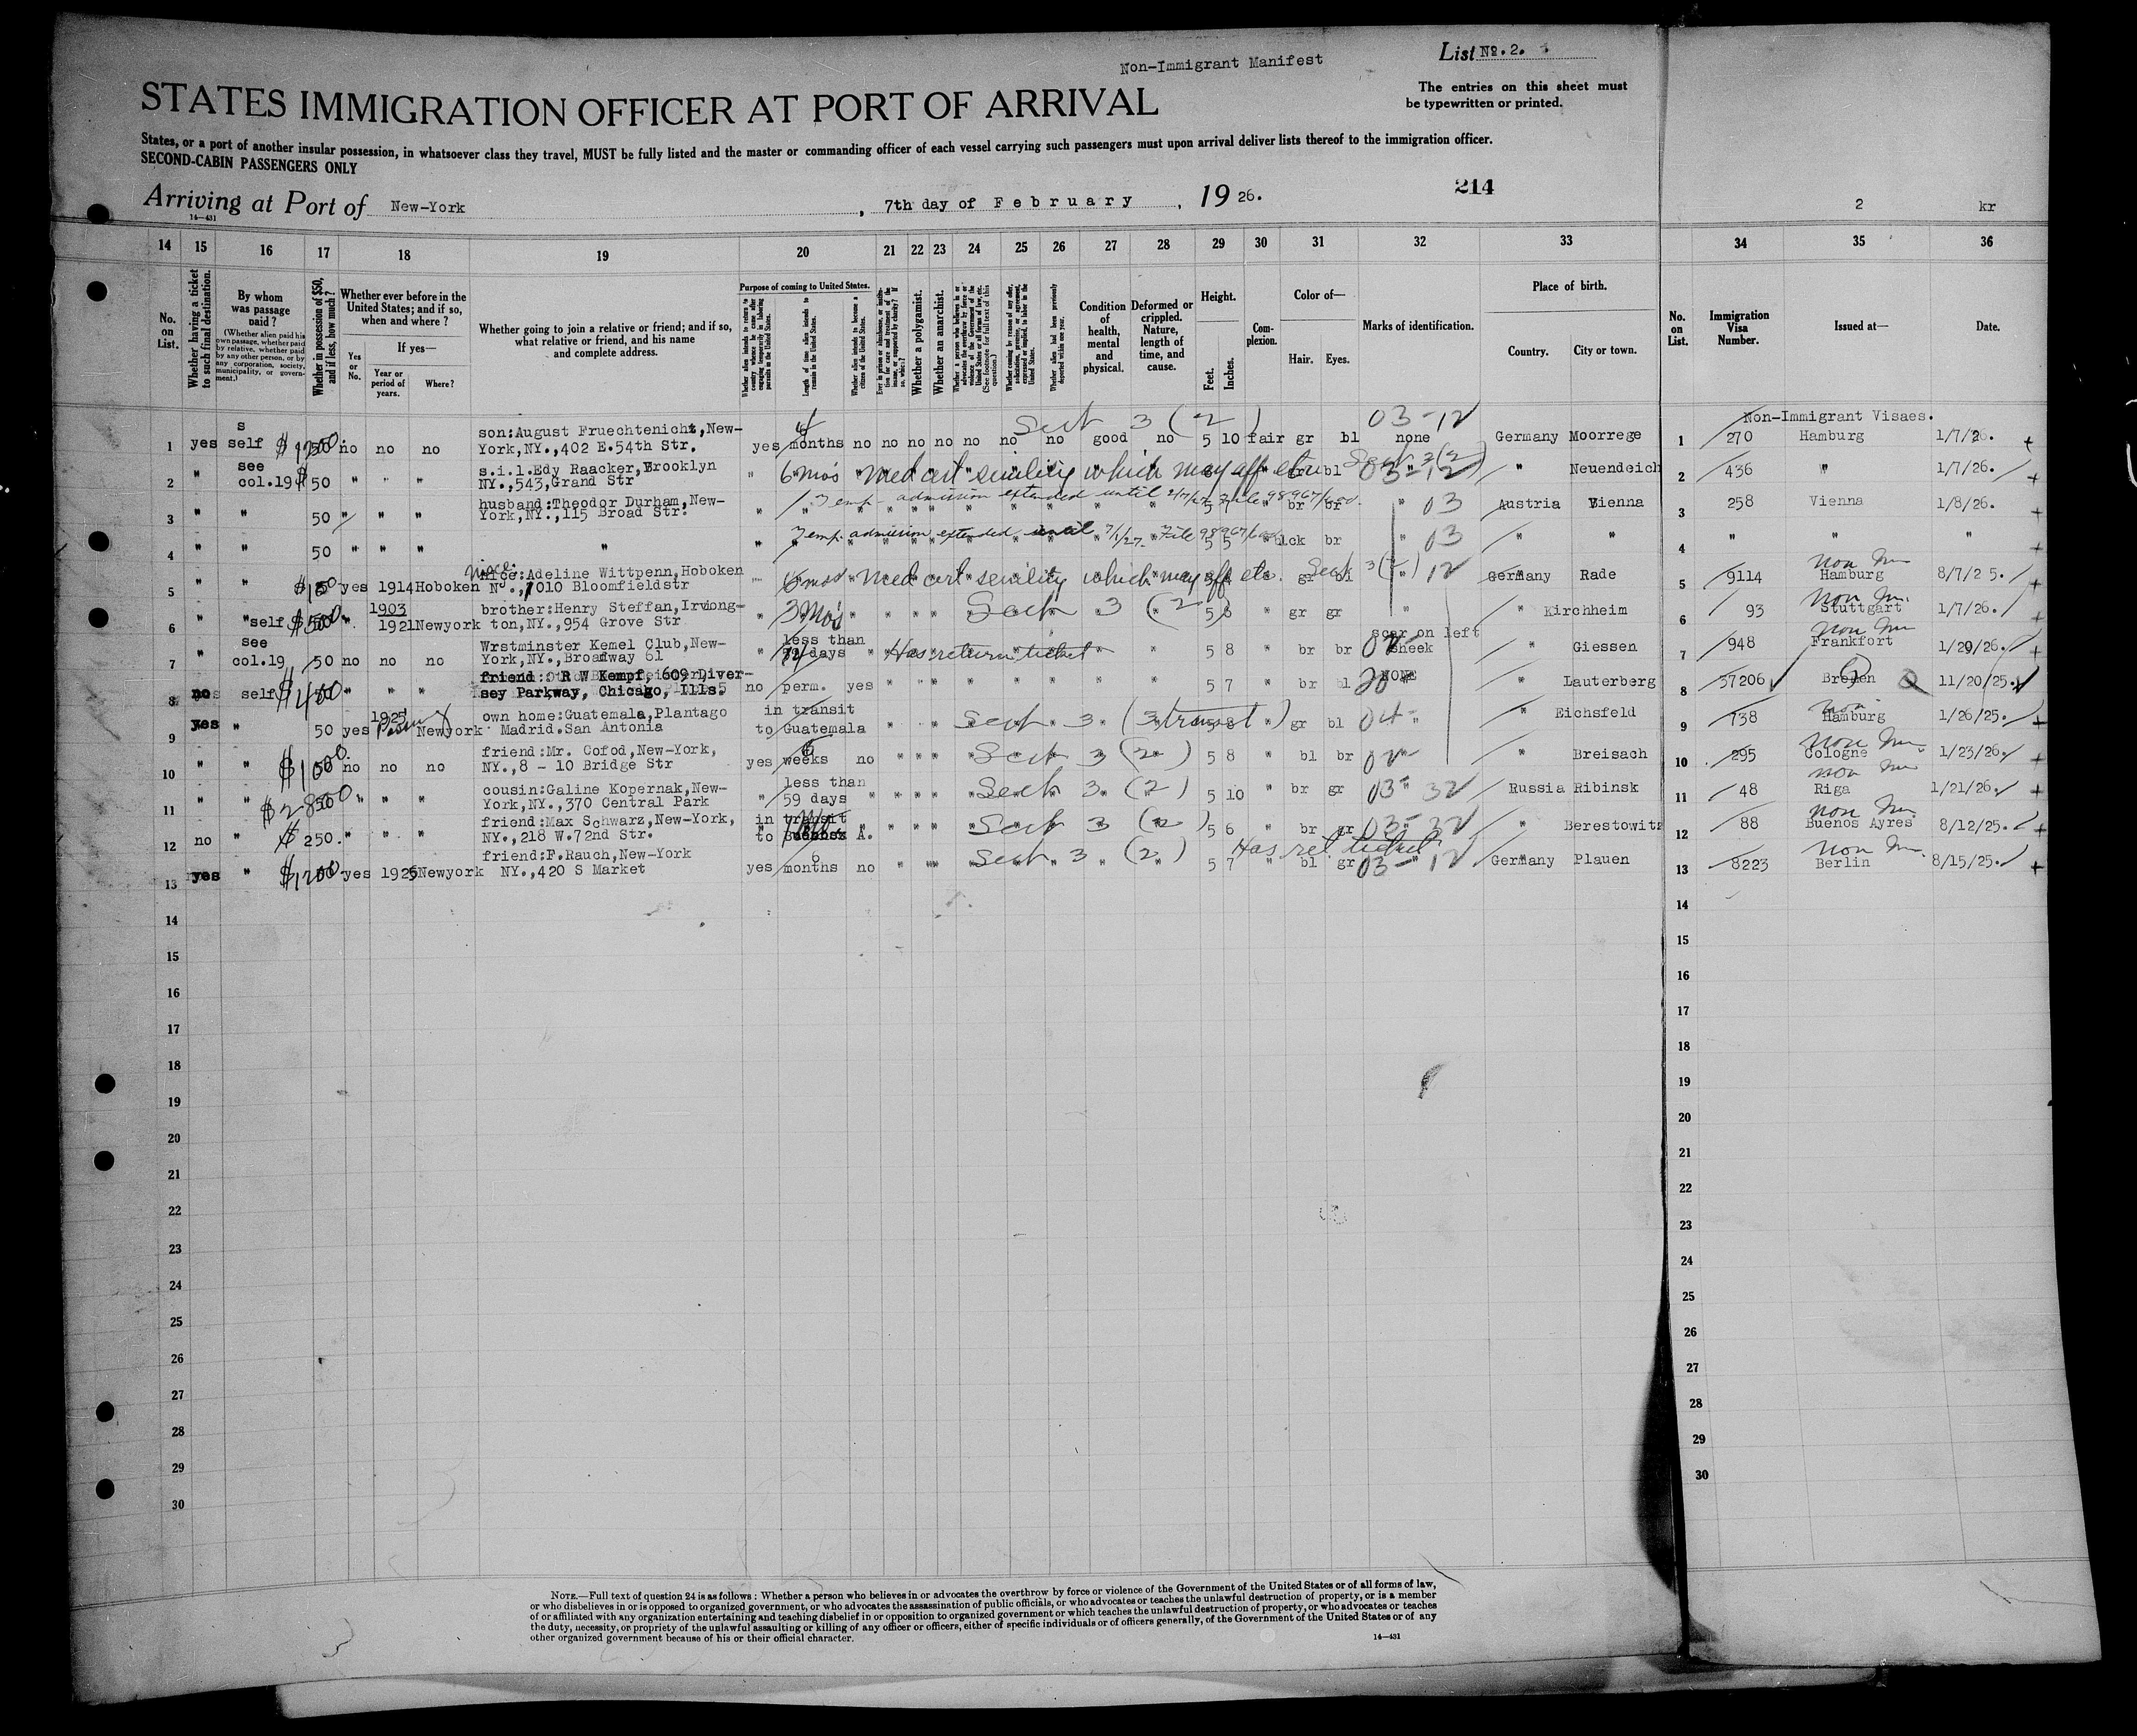 Non-Immigrant Manifest
List No. 2.
The entries on this sheet must
be typewritten or printed.
STATES IMMIGRATION OFFICER AT PORT OF ARRIVAL
States, or a port of another insular possession, in whatsoever class they travel, MUST be fully listed and the master or commanding officer of each vessel carrying such passengers must upon arrival deliver lists thereof to the immigration officer.
SECOND-CABIN PASSENGERS ONLY
Arriving at Port of New-York, 7th day of February, 1926.
214
14—431
2 kr
14 15 16 17 18 19 20 21 22 23 24 25 26 27 28 29 30 31 32 33 34 35 36
No. on List.
Whether having a ticket to such final destination.
By whom was passage paid?
(Whether alien paid his own passage, whether paid by relative, whether paid by any other person, or by any corporation, society, municipality, or government.)
Whether in possession of $50, and if less, how much?
Whether ever before in the United States; and if so, when and where?
Yes or No.
If yes—
Year or period of years.
Where?
Whether going to join a relative or friend; and if so, what relative or friend, and his name and complete address.
Purpose of coming to United States.
Whether alien intends to return to country whence he came after engaging temporarily in laboring pursuits in the United States.
Length of time alien intends to remain in the United States.
Whether alien intends to become a citizen of the United States.
Whether a polygamist.
Whether an anarchist.
Condition of health, mental and physical.
Deformed or crippled. Nature, length of time, and cause.
Height.
Feet. Inches.
Complexion.
Color of—
Hair. Eyes.
Marks of identification.
Place of birth.
Country. City or town.
No. on List.
Immigration Visa Number.
Issued at—
Date.
Sect 3 (2) 03-12 Non-Immigrant Visaes.
1 yes self no no no son:August Fruechtenicht,New-York,NY.,402 E.54th Str. yes months no no no no no no no good no 5 10 fair gr bl none Germany Moorrege 1 270 Hamburg 1/7/26.
2 " see col.19 $50 " " " s.i.l.Edy Raacker,Brooklyn NY.,543,Grand Str " 6 mo's med cert senility which may aff etc bl Sect 3(2) 03-12 " Neuendeich 2 436 " 1/7/26.
3 " " 50 " " " husband:Theodor Durham,New-York,NY.,115 Broad Str. " Temp admission extended until File 98967/600. br br " 03 Austria Vienna 3 258 Vienna 1/8/26.
4 " " 50 " " " " " Temp. admission extended until 7/1/27. File 98967/600 5 5 blck br " 03 " " 4 " " "
5 " " yes 1914 Hoboken niece:Adeline Wittpenn,Hoboken NJ.,1010 Bloomfieldstr 6 mos med cert senility which may aff etc. gr bl Sect 3(2) 12 Germany Rade 5 9114 non Im Hamburg 8/7/25.
6 " "self $500 " 1903 1921 Newyork brother:Henry Steffan,Irvington,NY.,954 Grove Str " 3 Mo's Sect 3 (2) 5 6 " gr gr " " Kirchheim 6 93 non Im. Stuttgart 1/7/26.
7 " see col.19 50 no no no Wrstminster Kemel Club,New-York,NY.,Broadway 61 " less than days " Has return ticket " 5 8 " br br scar on left cheek " Giessen 7 948 non Im Frankfort 1/29/26.
8 no self $400 " " " friend: R W Kempf, 609 Diversey Parkway, Chicago, Ills. no perm. yes " " " 5 7 " br bl NONE " Lauterberg 8 37206 Bremen 11/20/25.
9 yes " 50 yes 1925 Newyork own home:Guatemala,Plantago Madrid.San Antonia in transit to Guatemala Sect 3 (3 transit) 5 8 " gr bl 04 " " Eichsfeld 9 738 non Hamburg 1/26/25.
10 " " $100 no no no friend:Mr. Cofod,New-York,NY.,8 - 10 Bridge Str yes 6 weeks no " " " Sect 3 (2) 5 8 " bl br 02 " " Breisach 10 295 non Im. Cologne 1/23/26.
11 " " $2850 " " " cousin:Galine Kopernak,New-York,NY.,370 Central Park " less than 59 days " " " " Sect 3 (2) 5 10 " br gr 03 " 32 Russia Ribinsk 11 48 non Im Riga 1/21/26.
12 no " $250. " " " friend:Max Schwarz,New-York,NY.,218 W.72nd Str. in transit to A. " " " " Sect 3 (2) 5 6 " br gr 03-32 " Berestowitz 12 88 non Im. Buenos Ayres 8/12/25.
13 yes " $1200. yes 1925 Newyork friend:F.Rauch,New-York NY.,420 S Market yes 6 months no " " Sect 3 (2) Has ret ticket 5 7 " bl gr 03-12 Germany Plauen 13 8223 non Im. Berlin 8/15/25.
14 14
15 15
16 16
17 17
18 18
19 19
20 20
21 21
22 22
23 23
24 24
25 25
26 26
27 27
28 28
29 29
30 30
NOTE.—Full text of question 24 is as follows: Whether a person who believes in or advocates the overthrow by force or violence of the Government of the United States or of all forms of law,
or who disbelieves in or is opposed to organized government, or who advocates the assassination of public officials, or who advocates or teaches the unlawful destruction of property, or is a member
of or affiliated with any organization entertaining and teaching disbelief in or opposition to organized government or which teaches the unlawful destruction of property, or who advocates or teaches
the duty, necessity, or propriety of the unlawful assaulting or killing of any officer or officers, either of specific individuals or of officers generally, of the Government of the United States or of any
other organized government because of his or their official character.
14—431